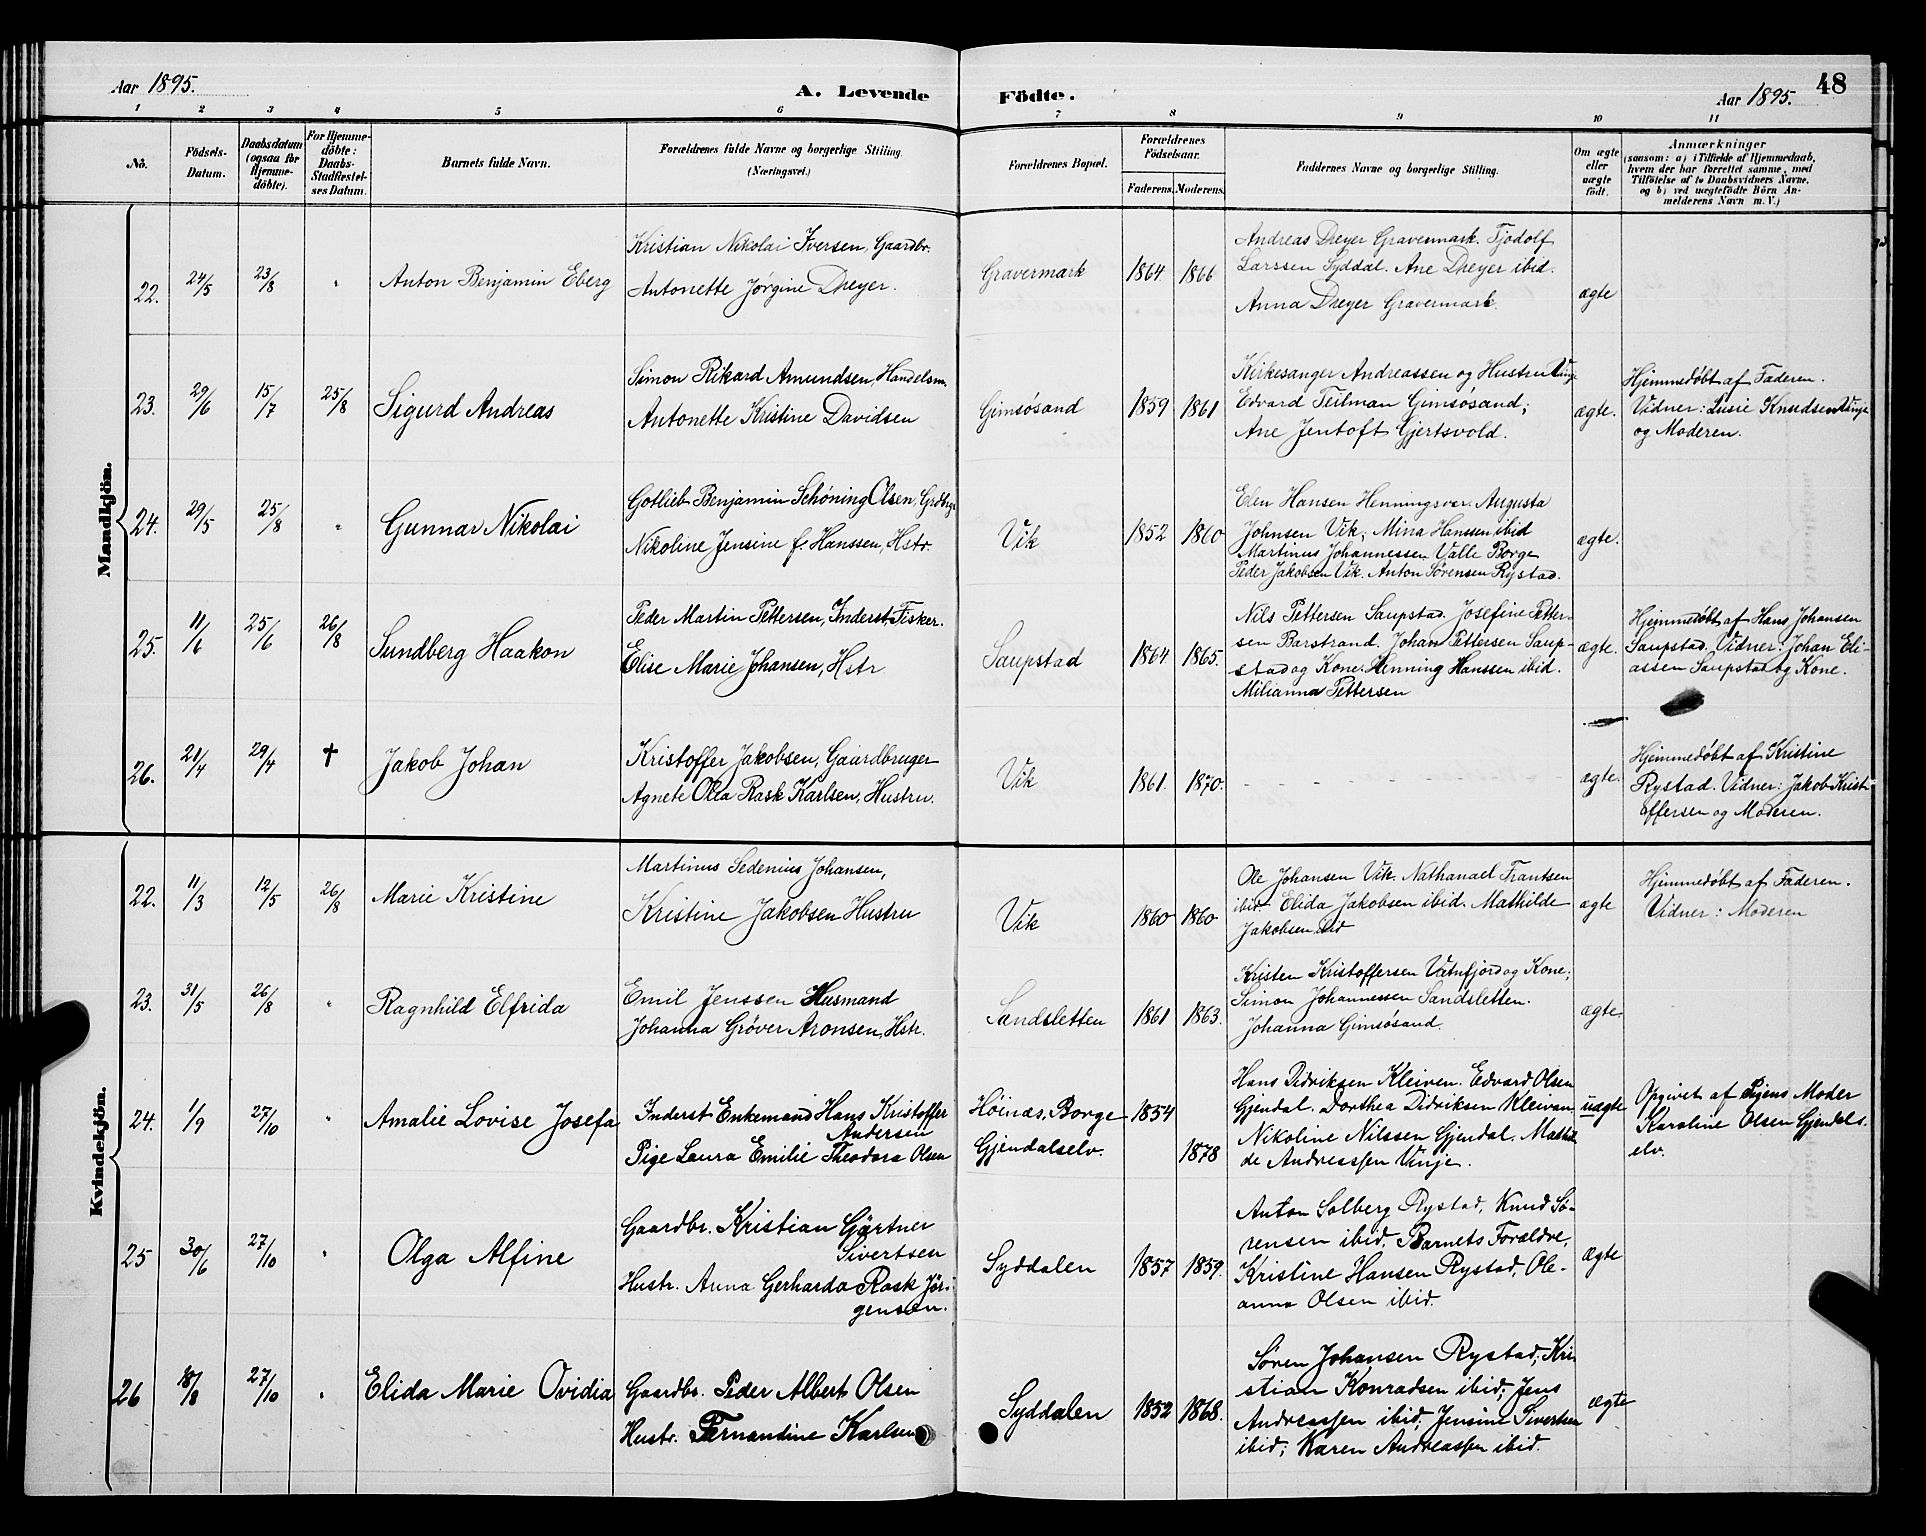 Aar 1895.
A. Levende Födte.
Aar 1895.
48
1 2 3 4 5 6 7 8 9 10 11
No.
Födsels-Datum.
Daabsdatum (ogsaa for Hjemme-döbte).
For Hjemme-döbte: Daabs-Stadfæstel-ses Datum.
Barnets fulde Navn.
Forældrenes fulde Navne og borgerlige Stilling.
(Næringsvei.)
Forældrenes Bopæl.
Forældrenes Födselsaar.
Faderens. Moderens.
Faddernes Navne og borgerlige Stilling.
Om ægte eller uægte födt.
Anmærkninger
(saasom: a) i Tilfælde af Hjemmedaab,
hvem der har forrettet samme, med
Tilföielse af to Daabsvidners Navne,
og b) ved uægtefödte Börn An-
melderens Navn m. V.)
Mandkjön.
22. 24/5 23/8 " Anton Benjamin Eberg
Kristian Nikolai Iversen, Gaardbr.
Antonette Jørgine Dreyer.
Gravermark 1864 1866
Andreas Dreyer Gravermark. Tjodolf
Larssen Syddal. Ane Dreyer ibid.
Anna Dreyer Gravermark
ægte
23. 29/6 15/7 25/8 Sigurd Andreas
Simon Rikard Amundsen, Handelsm.
Antonette Kristine Davidsen
Gimsøsand 1859 1861
Kirkesanger Andreassen og Hustru Vinje
Edvard Teilman Gimsøsand;
Ane Jentoft Gjertsvold.
ægte.
Hjemmedøbt af Faderen.
Vidner: Lusie Knudsen Vinje
og Moderen.
24. 29/5 25/8 " Gunnar Nikolai
Gotlieb Benjamin Schøning Olsen, Grdbrg
Nikoline Jensine f. Hanssen, Hstr.
Vik 1852 1860
Elen Hansen Henningsver. Augusta
Johnsen Vik; Mina Hanssen ibid
Martinus Johannessen Valle Borge
Peder Jakobsen Vik. Anton Sørensen Rystad.
ægte.
25. 11/6 25/6 26/8 Sundberg Haakon
Peder Martin Pettersen, Inderst, Fisker.
Elise Marie Johansen, Hstr
Saupstad 1864 1865.
Nils Pettersen Saupstad. Josefine Petter-
sen Barstrand. Johan Pettersen Saup-
stad og Kone. Henning Hanssen ibid.
Milianna Pettersen
ægte.
Hjemmedøbt af Hans Johansen
Saupstad. Vidner: Johan Eli-
assen Saupstad og Kone.
26. 21/4 29/4 † Jakob Johan
Kristoffer Jakobsen, Gaardbruger
Agnete Olea Rask Karlsen, Hustru.
Vik 1861. 1870.
- - - - -
ægte.
Hjemmedøbt af Kristine
Rystad. Vidner: Jakob Krist-
offersen og Moderen.
Kvindekjön.
22. 11/3 12/5 26/8 Marie Kristine
Martinus Sedenius Johansen,
Kristine Jakobsen Hustru
Vik 1860 1860
Ole Johansen Vik. Nathanael Frantsen
ibid. Elida Jakobsen ibid. Mathilde
Jakobsen ibid
ægte
Hjemmedøbt af Faderen.
Vidner: Moderen
23. 31/5 26/8 " Ragnhild Elfrida
Emil Jenssen Husmand
Johanna Grøver Aronsen, Hstr.
Sandsletten 1861 1863.
Kristen Kristoffersen Vatnfjord og Kone;
Simon Johannessen Sandsletten.
Johanna Gimsøsand.
ægte.
24. 1/9 27/10 " Amalie Lovise Josefa
Inderst Enkemand Hans Kristoffer
Andersen
Pige Laura Emilie Theodora Olsen
Høinæs, Borge 1854
Gjendalselv. 1878
Hans Didriksen Kleiven. Edvard Olsen
Gjendal. Dorthea Didriksen Kleivan.
Nikoline Nilssen Gjendal. Mathil
de Andreassen Vinje.
uægte
Opgivet af Pigens Moder
Karoline Olsen Gjendals.
elv.
25 30/6 27/10 " Olga Alfine
Gaardbr. Kristian Gärtner
Sivertsen
Hustr. Anna Gerharda Rask Jör-
gensen.
Syddalen 1857 1859.
Anton Solberg Rystad, Knud Sö-
rensen ibid. Barnets Forældre,
Kristine Hansen Rystad, Ole-
anna Olsen ibid.
ægte
26 18/8 27/10 " Elida Marie Ovidia
Gaardbr. Peder Albert Olsen
Hustr. Fernandine Karlsen
Syddalen 1852 1868.
Sören Johansen Rystad; Kri
stian Konradsen ibid; Jens
Andreassen ibid; Jensine Sivertsen
ibid; Karen Andreassen ibid.
ægte